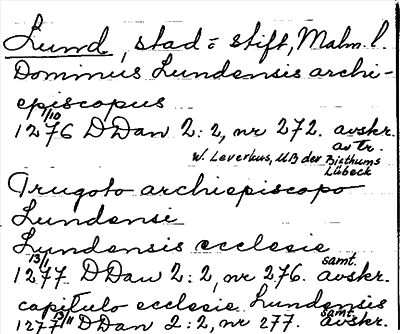 Lund, stad = stift, Malm. l.
Dominus Lundensis archi-
episcopus
1/10
1276 DDan 2:2, nr 272. avskr.
av tr.
W. Leverkus, UB der Bisthums
Lübeck
Trugoto archiepiscopo
Lundensi
Lundensis ecclesie
13/1 samt.
1277 DDan 2:2, nr 276. avskr.
capitulo ecclesie Lundensis
samt.
1277 DDan 2:2, nr 277. avskr.